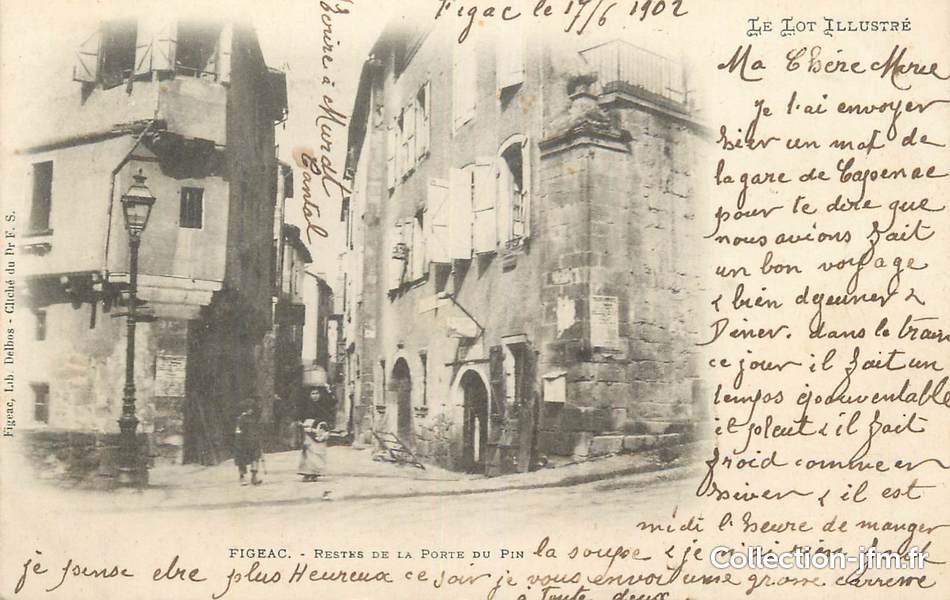 LE LOT ILLUSTRÉ
Figeac le 17/6 1902
Ecrire à Murat
Cantal
Ma Chére Marie
Je l'ai envoyer
hier un mot de
la gare de Capenac
pour te dire que
nous avions fait
un bon voyage
& bien dejeuner &
Diner. dans le train
ce jour il fait un
temps épouventable
il pleut & il fait
froid comme en
hiver & il est
midi l'heure de manger
la soupe & je n'ai rien
je pense etre plus Heureux ce soir je vous envoi une grosse carresse
à Toute deux
FIGEAC. - RESTES DE LA PORTE DU PIN
Figeac, Lib. Delbos - Cliché du Dr F. S.
Collection-jfm.fr